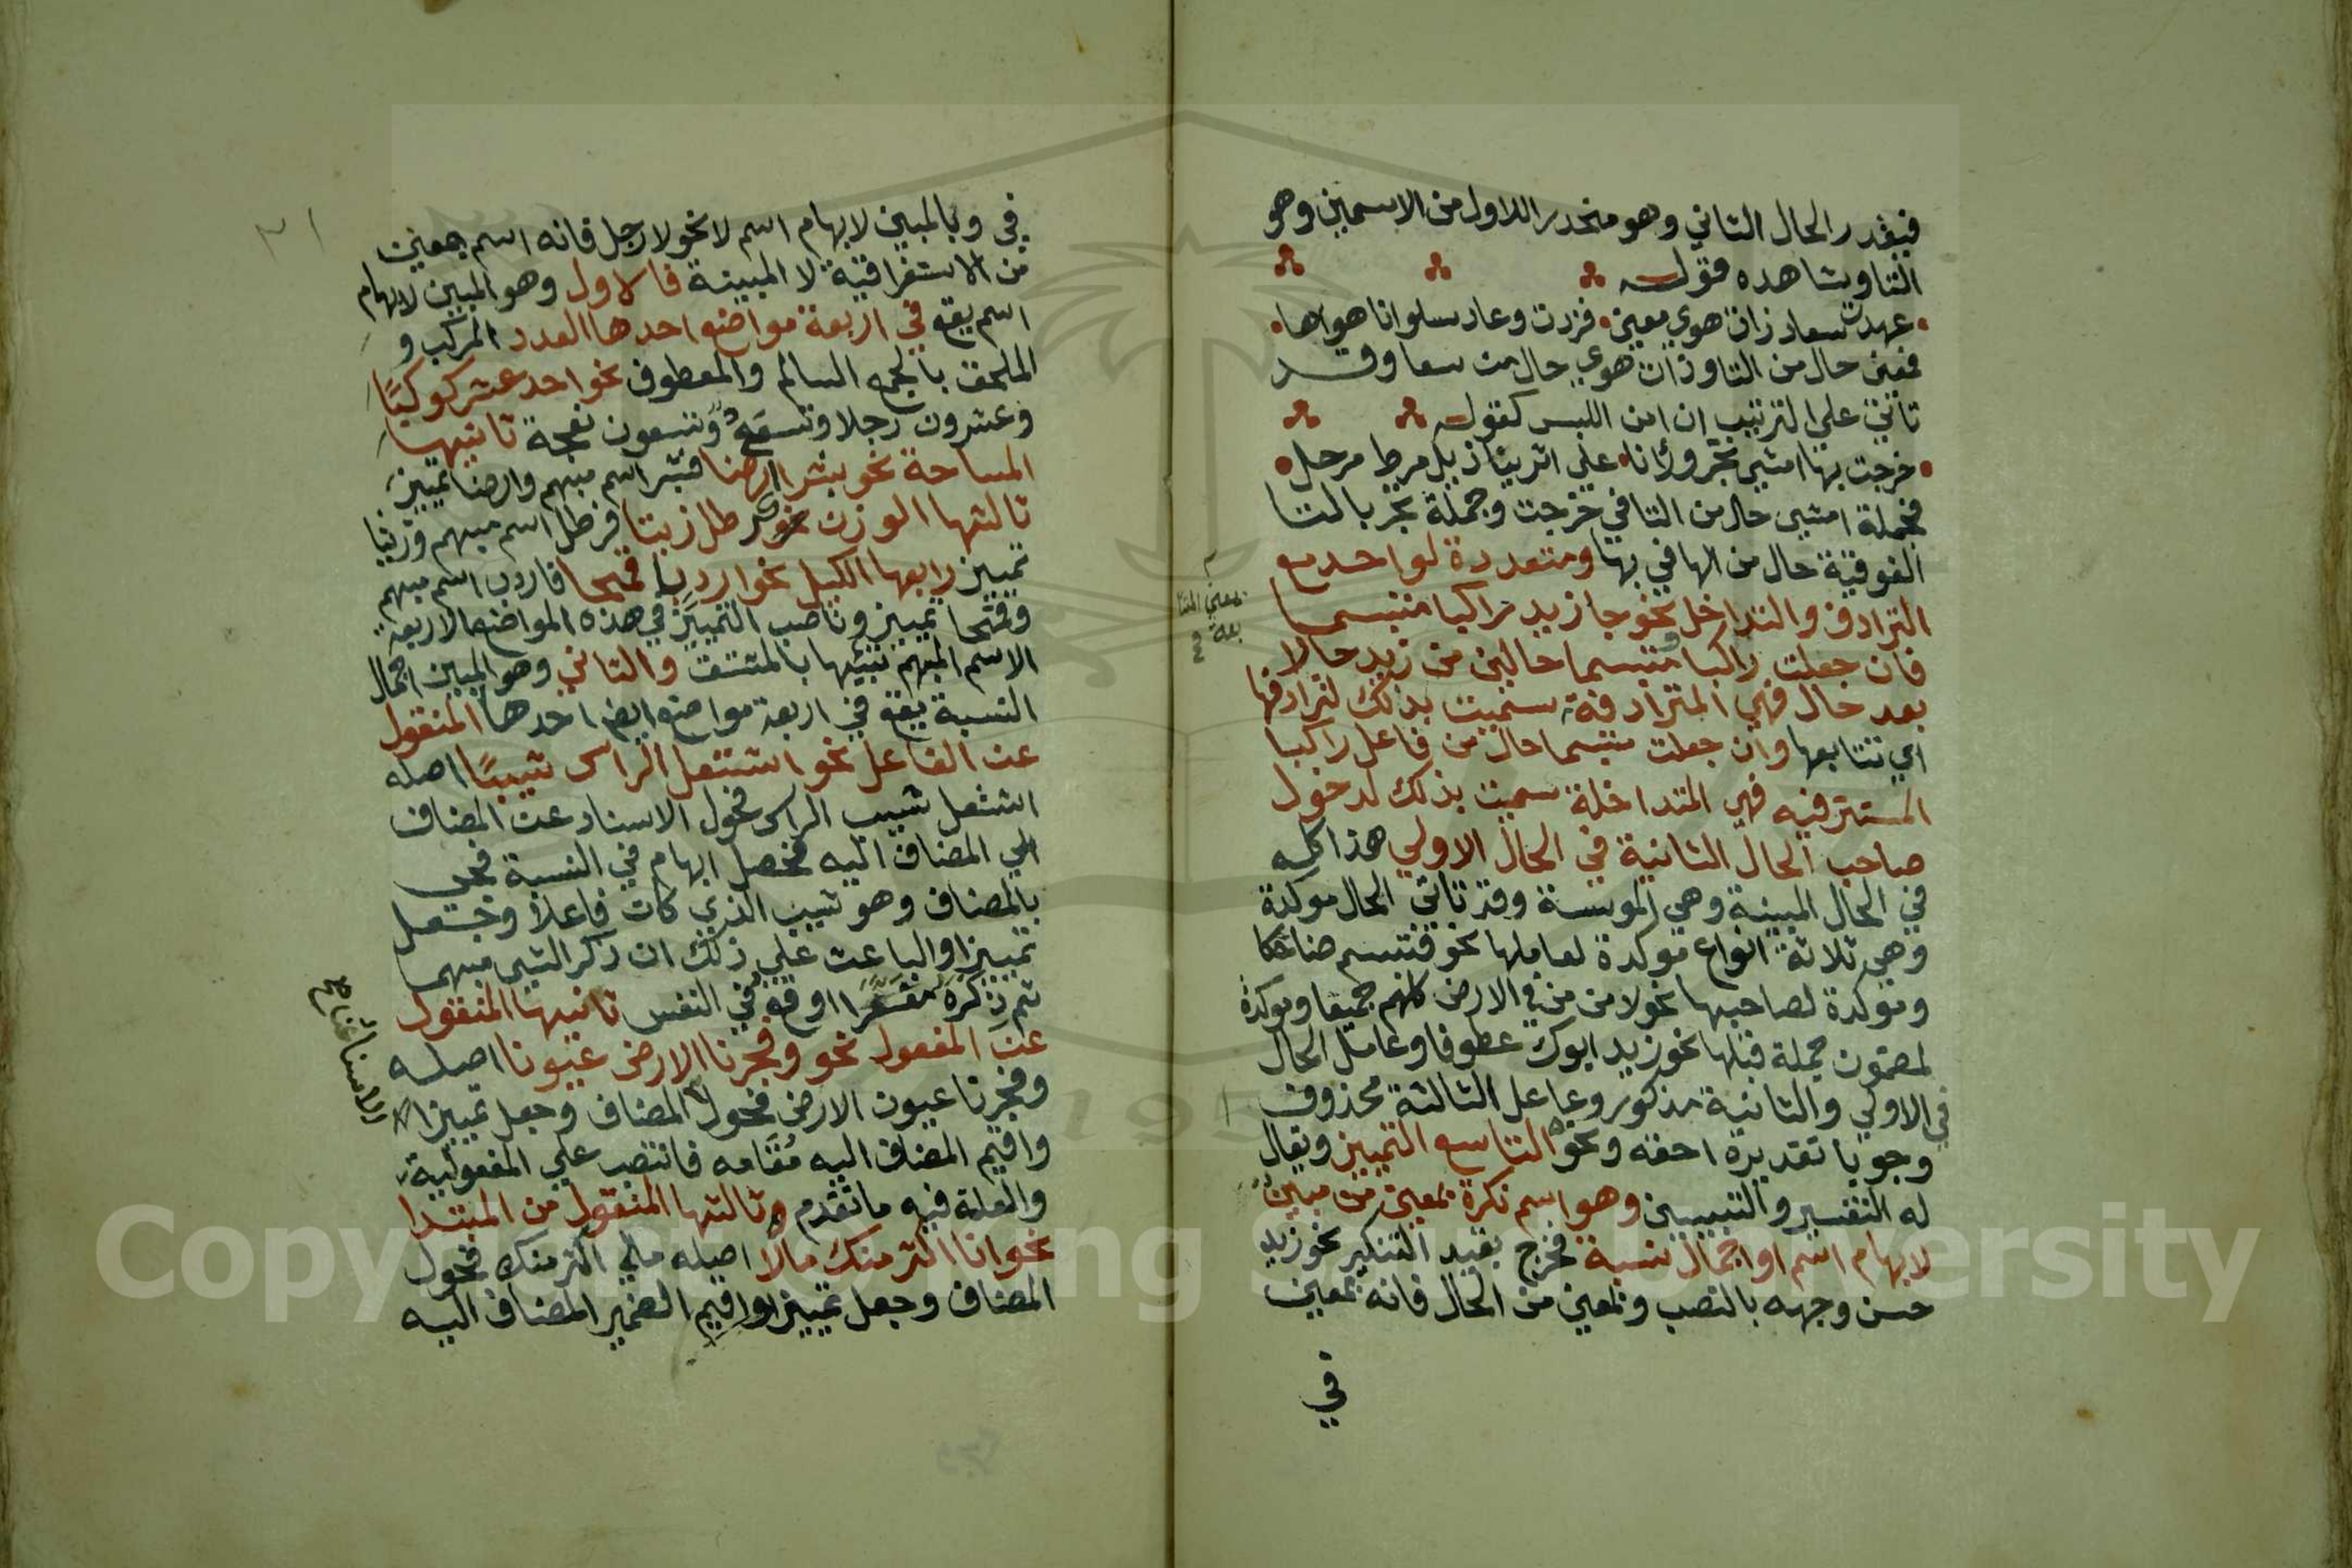 فيقدر الحال الثاني وهو منحدر اللاول من الاسمين وهو
التا وشاهده قوله
عهدت سعاد ذات هوي معني فزدت وعاد سلوانا هواها
فمعني حال من التا وذات هوي حال من سعا وقد
تاتي علي الترتيب ان امن اللبس كقوله
خرجت بها امشي تجر ورانا علي اثرينا ذيل مرط مرحل
فجملة امشي حال من التا في خرجت وجملة تجر بالتا
الفوقية حال من الها في بها ومتعددة لواحد مع
الترادف والتداخل نحو جا زيد راكبا متبسما
فان جعلت راكبا ومتبسما حالين من زيد حالا
بعد حال فهي المترادفة سميت بذلك لترادفها
اي تتابعها وان جعلت متبسما حال من فاعل راكبا
المستتر فيه فهي المتداخلة سميت بذلك لدخول
صاحب الحال الثانية في الحال الاولي هذا كله
في الحال المبينة وهي الموسسة وقد تاتي الحال موكدة
وهي ثلاثة انواع موكدة لعاملها نحو فتبسم ضاحكا
وموكدة لصاحبها نحو لامن من في الارض كلهم جميعا وموكدة
لمضمون جملة قبلها نحو زيد ابوك عطوفا وعامل الحال
في الاولي والثانية مذكور وعامل الثالثة محذوف
وجوبا تقديره احقه ونحوه التاسع التمييز ويقال
له التفسير والتبيين وهو اسم نكرة بمعني من مبين
لابهام اسم او اجمال نسبة فخرج بقيد التنكير نحو زيد
حسن وجهه بالنصب وبمعني من الحال فانه بمعني
في
بمعني المتا
بعة
في وبالمبين لابهام اسم لا نحو لا رجل فانه اسم بمعني
من الاستغراقية لا المبينة فالاول وهو المبين لابهام
اسم يقع في اربعة مواضع احدها العدد المركب و
الملحق بالجمع السالم والمعطوف نحو احد عشر كوكبًا
وعشرون رجلا وتسع وتسعون نعجة ثانيها
المساحة نحو شبر ارضا فشبر اسم مبهم وارضا تمييز
ثالثها الوزن نحو رطل زيتا فرطل اسم مبهم وزيتا
تمييز رابعها الكيل نحو اردب قمحا فاردب اسم مبهم
وقمحا تمييز وناصب التمييز في هذه المواضع الاربعة
الاسم المبهم تشبيها بالمشتق والثاني وهو المبين اجمال
النسبة يقع في اربعة مواضع ايضا احدها المنقول
عن الفاعل نحو اشتعل الراس شيبًا اصله
اشتعل شيب الراس فحول الاسناد عن المضاف
الي المضاف اليه فحصل ابهام في النسبة فجي
بالمضاف وهو شيب الذي كان فاعلا وجعل
تمييزا والباعث علي ذلك ان ذكر الشي مبهما
ثم ذكره مفسرًا اوقع في النفس ثانيها المنقول
عن المفعول نحو وفجرنا الارض عيونا اصله
وفجرنا عيون الارض فحول المضاف وجعل تمييزا
واقيم المضاف اليه مُقَامه فانتصب علي المفعولية
والعلة فيه ما تقدم وثالثها المنقول من المبتدا
نحو انا اكثر منك مالا اصله مالي اكثر منك فحول
المضاف وجعل تمييزا واقيم الضمير المضاف اليه
٢١
Copyright © King Saud University